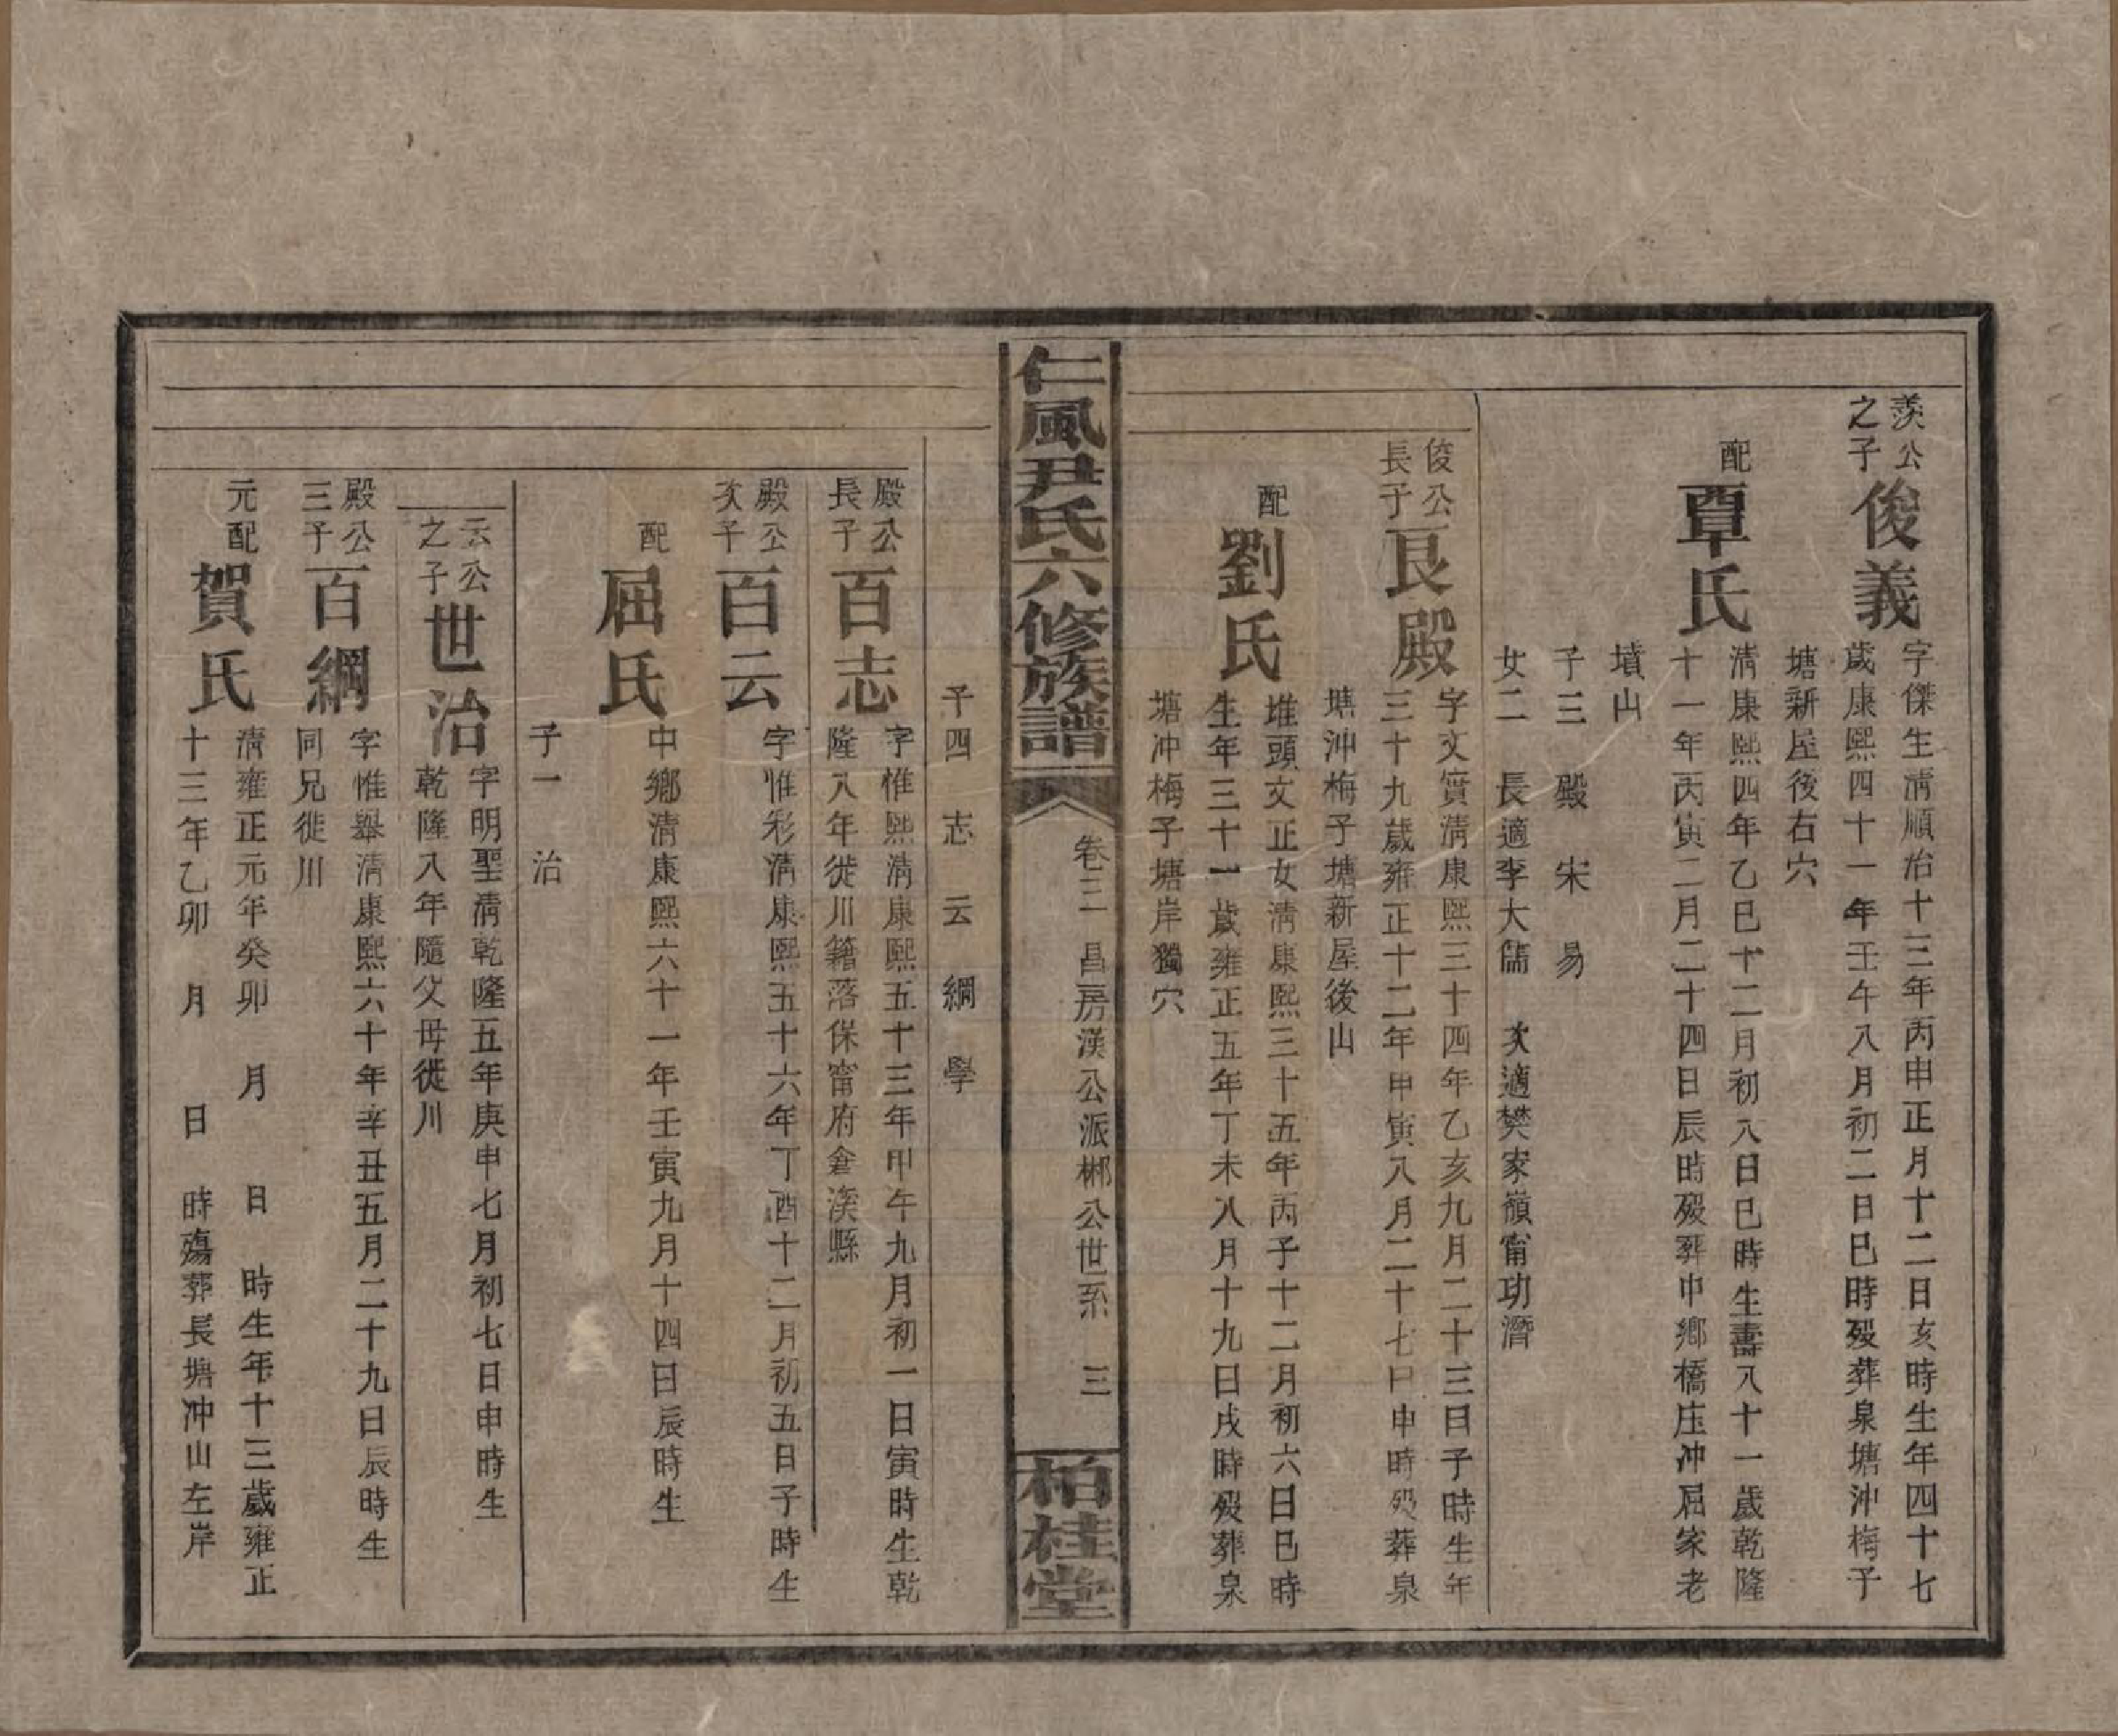 羨公
之子
俊義
字傑生清順治十三年丙申正月十二日亥時生年四十七
歲康熙四十一年壬午八月初二日巳時歿葬泉塘沖梅子
塘新屋後右穴
配
覃氏
清康熙四年乙巳十二月初八日巳時生壽八十一歲乾隆
十一年丙寅二月二十四日辰時歿葬中鄉橋庄冲屈家老
墳山
子三 殿 宋 易
女二 長適李大儒 次適樊家嶺甯功潛
俊公
長子
良殿
字文實清康熙三十四年乙亥九月二十三日子時生年
三十九歲雍正十二年甲寅八月二十七日申時歿葬泉
塘沖梅子塘新屋後山
配
劉氏
堆頭文正女清康熙三十五年丙子十二月初六日巳時
生年三十一歲雍正五年丁未八月十九日戌時歿葬泉
塘冲梅子塘岸獨穴
仁風尹氏六修族譜
卷三 昌房漢公派郴公世系 三
柏桂堂
子四 志 云 綱 學
殿公
長子
百志
字惟熙清康熙五十三年甲午九月初一日寅時生乾
隆八年徙川籍落保甯府倉溪縣
殿公
次子
百云
字惟彩清康熙五十六年丁酉十二月初五日子時生
配
屈氏
中鄉清康熙六十一年壬寅九月十四日辰時生
子一 治
云公
之子
世治
字明聖清乾隆五年庚申七月初七日申時生
乾隆八年隨父母徙川
殿公
三子
百綱
字惟舉清康熙六十年辛丑五月二十九日辰時生
同兄徙川
元配
賀氏
清雍正元年癸卯 月 日 時生年十三歲雍正
十三年乙卯 月 日 時殤葬長塘冲山左岸